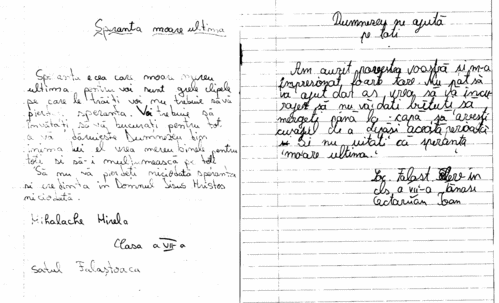 Speranta moare ultima
Speranta e cea care moare mereu
ultima pentru voi sunt grele clipele
pe care le trăiți voi nu trebuie să vă
pierdeți speranta. Voi trebuie să
învătați să vă bucurati pentru tot
ce vă dăruiește Dumnezeu din
inima lui el vrea mereu binele pentru
toti si să-i multumească pe toti
Să nu vă pierdeti niciodată speranta
si credinta în Domnul Iisus Hristos
niciodată.
Mihalache Mirela
Clasa a VII-a
Satul Falastoaca
Dumnezeu pe ajută
pe toti
Am auzit povestea voastră si m-a
impresionat foarte tare. Nu pot să
vă ajut dar as vrea să vă incu
rajez să nu vă dati bătuti să
mergeti până la capa sa aveti
curajul de a depasi această perioadă
Si nu uitati că speranta
moare ultima.
Loc. Falast. Elev in
cls a VII-a Tănase
Octavian Ioan